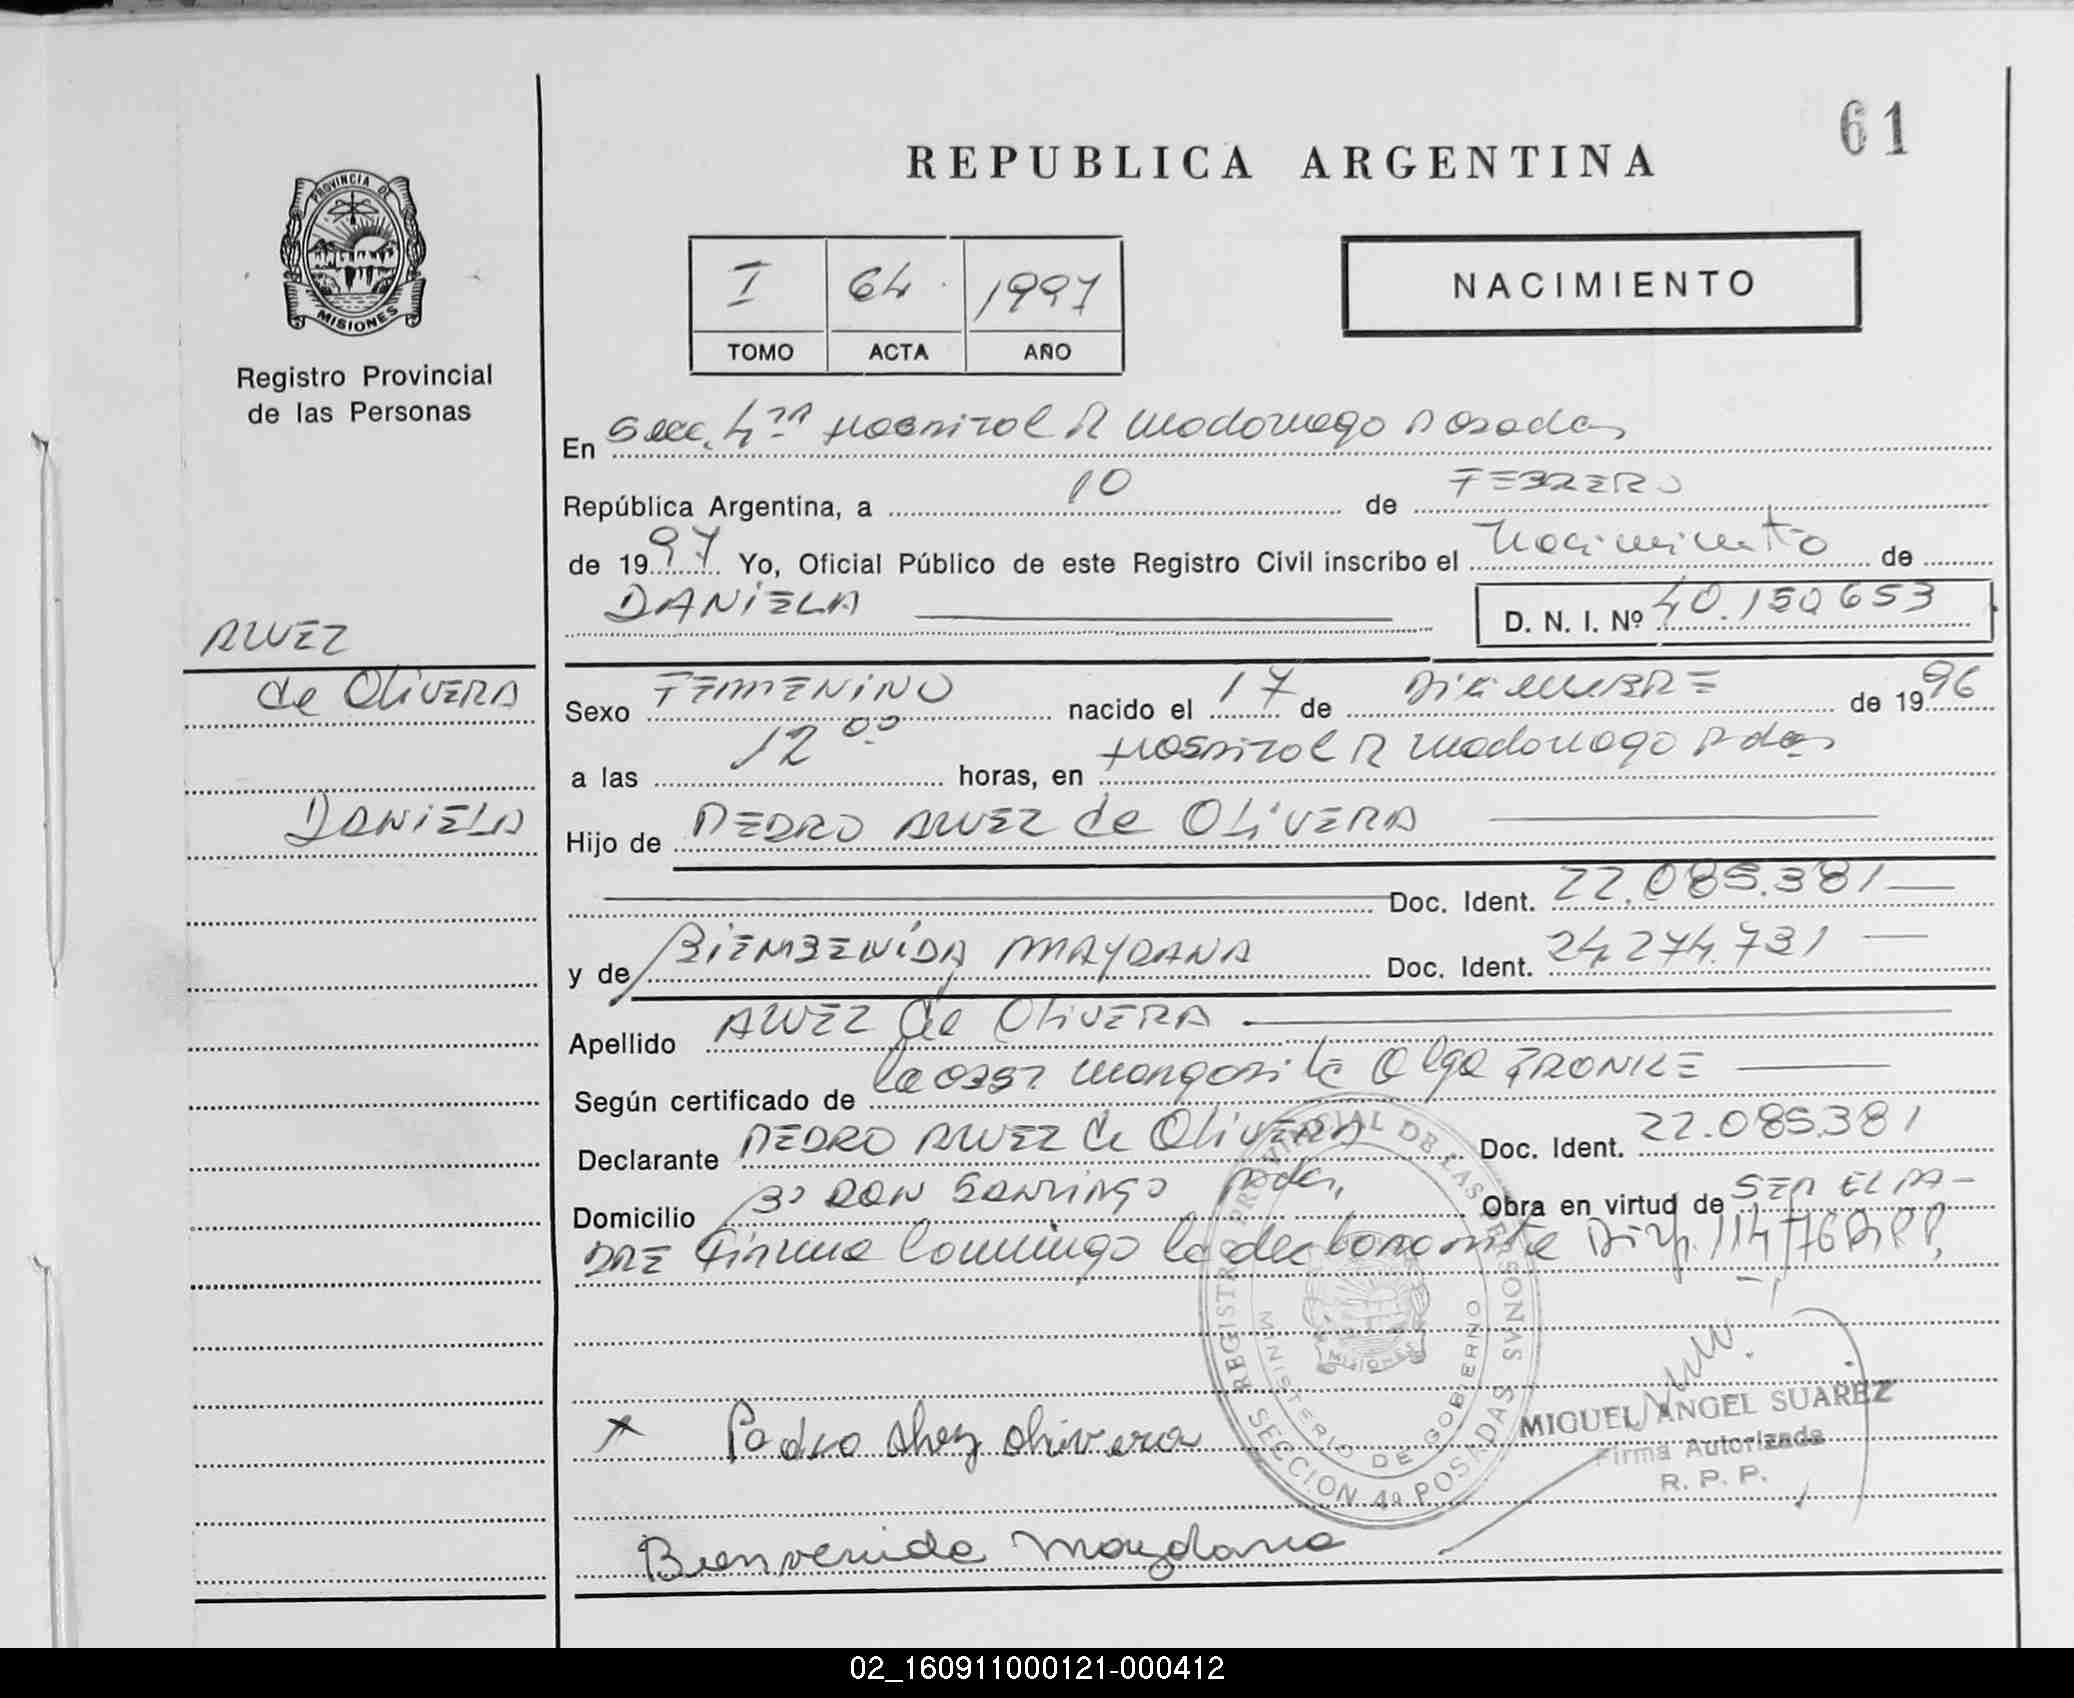 61
REPUBLICA ARGENTINA
PROVINCIA DE
MISIONES
Registro Provincial
de las Personas
I 64 1997
TOMO ACTA AÑO
NACIMIENTO
En Secc. 4ta Hospital R Madariaga Posadas
República Argentina, a 10 de FEBRERO
de 1997 Yo, Oficial Público de este Registro Civil inscribo el Nacimiento de
DANiELA
D. N. I. Nº 40.150653
ALVEZ
de OliVERA
DANiELA
Sexo FEMENiNO nacido el 17 de DiCiEMBRE de 1996
a las 12 00 horas, en Hospital R Madariaga Pdas
Hijo de PEDRO ALVEZ de OLiVERA
Doc. Ident. 22.085.381
y de BiEMBENiDA MAYDANA Doc. Ident. 24.274.731
Apellido ALVEZ de OLiVERA
Según certificado de la Margarita Olga
Declarante PEDRO ALVEZ de OLiVERA Doc. Ident. 22.085.381
Domicilio Bº SAN Pdas, Obra en virtud de SER EL PA-
DRE Firma la declarante Disp. 114/76
REGISTRO PROVINCIAL DE LAS PERSONAS
MINISTERIO DE GOBIERNO
MISIONES
SECCION 4a POSADAS
MIGUEL ANGEL SUAREZ
Firma Autorizada
R. P. P.
Pedro Alvez Olivera
Bienvenida Maydana
02_160911000121-000412